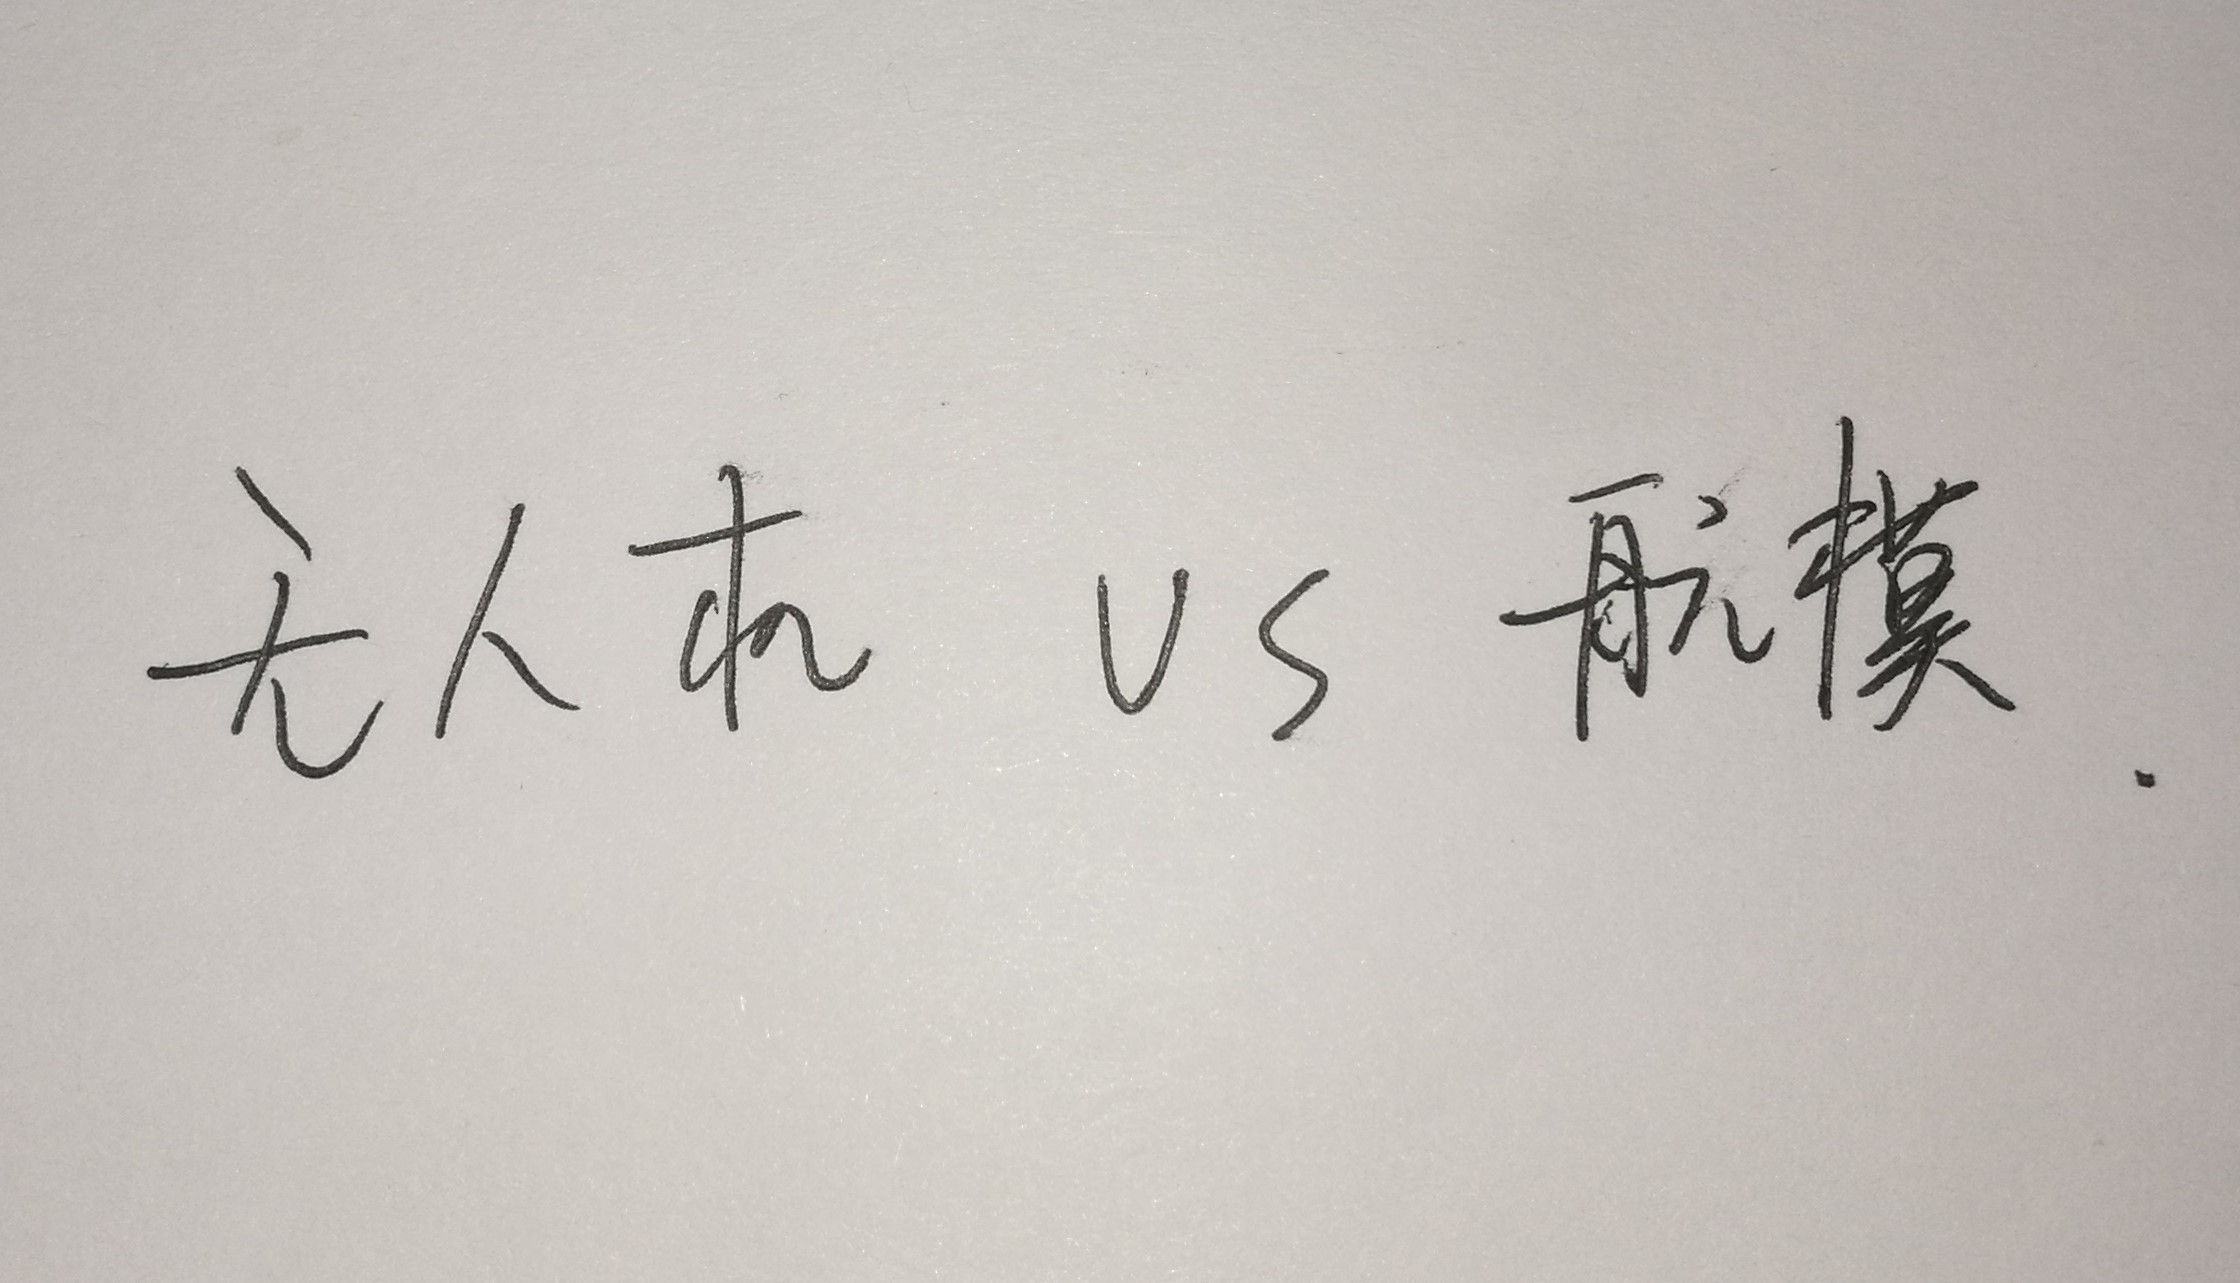 无人机 VS 航模.